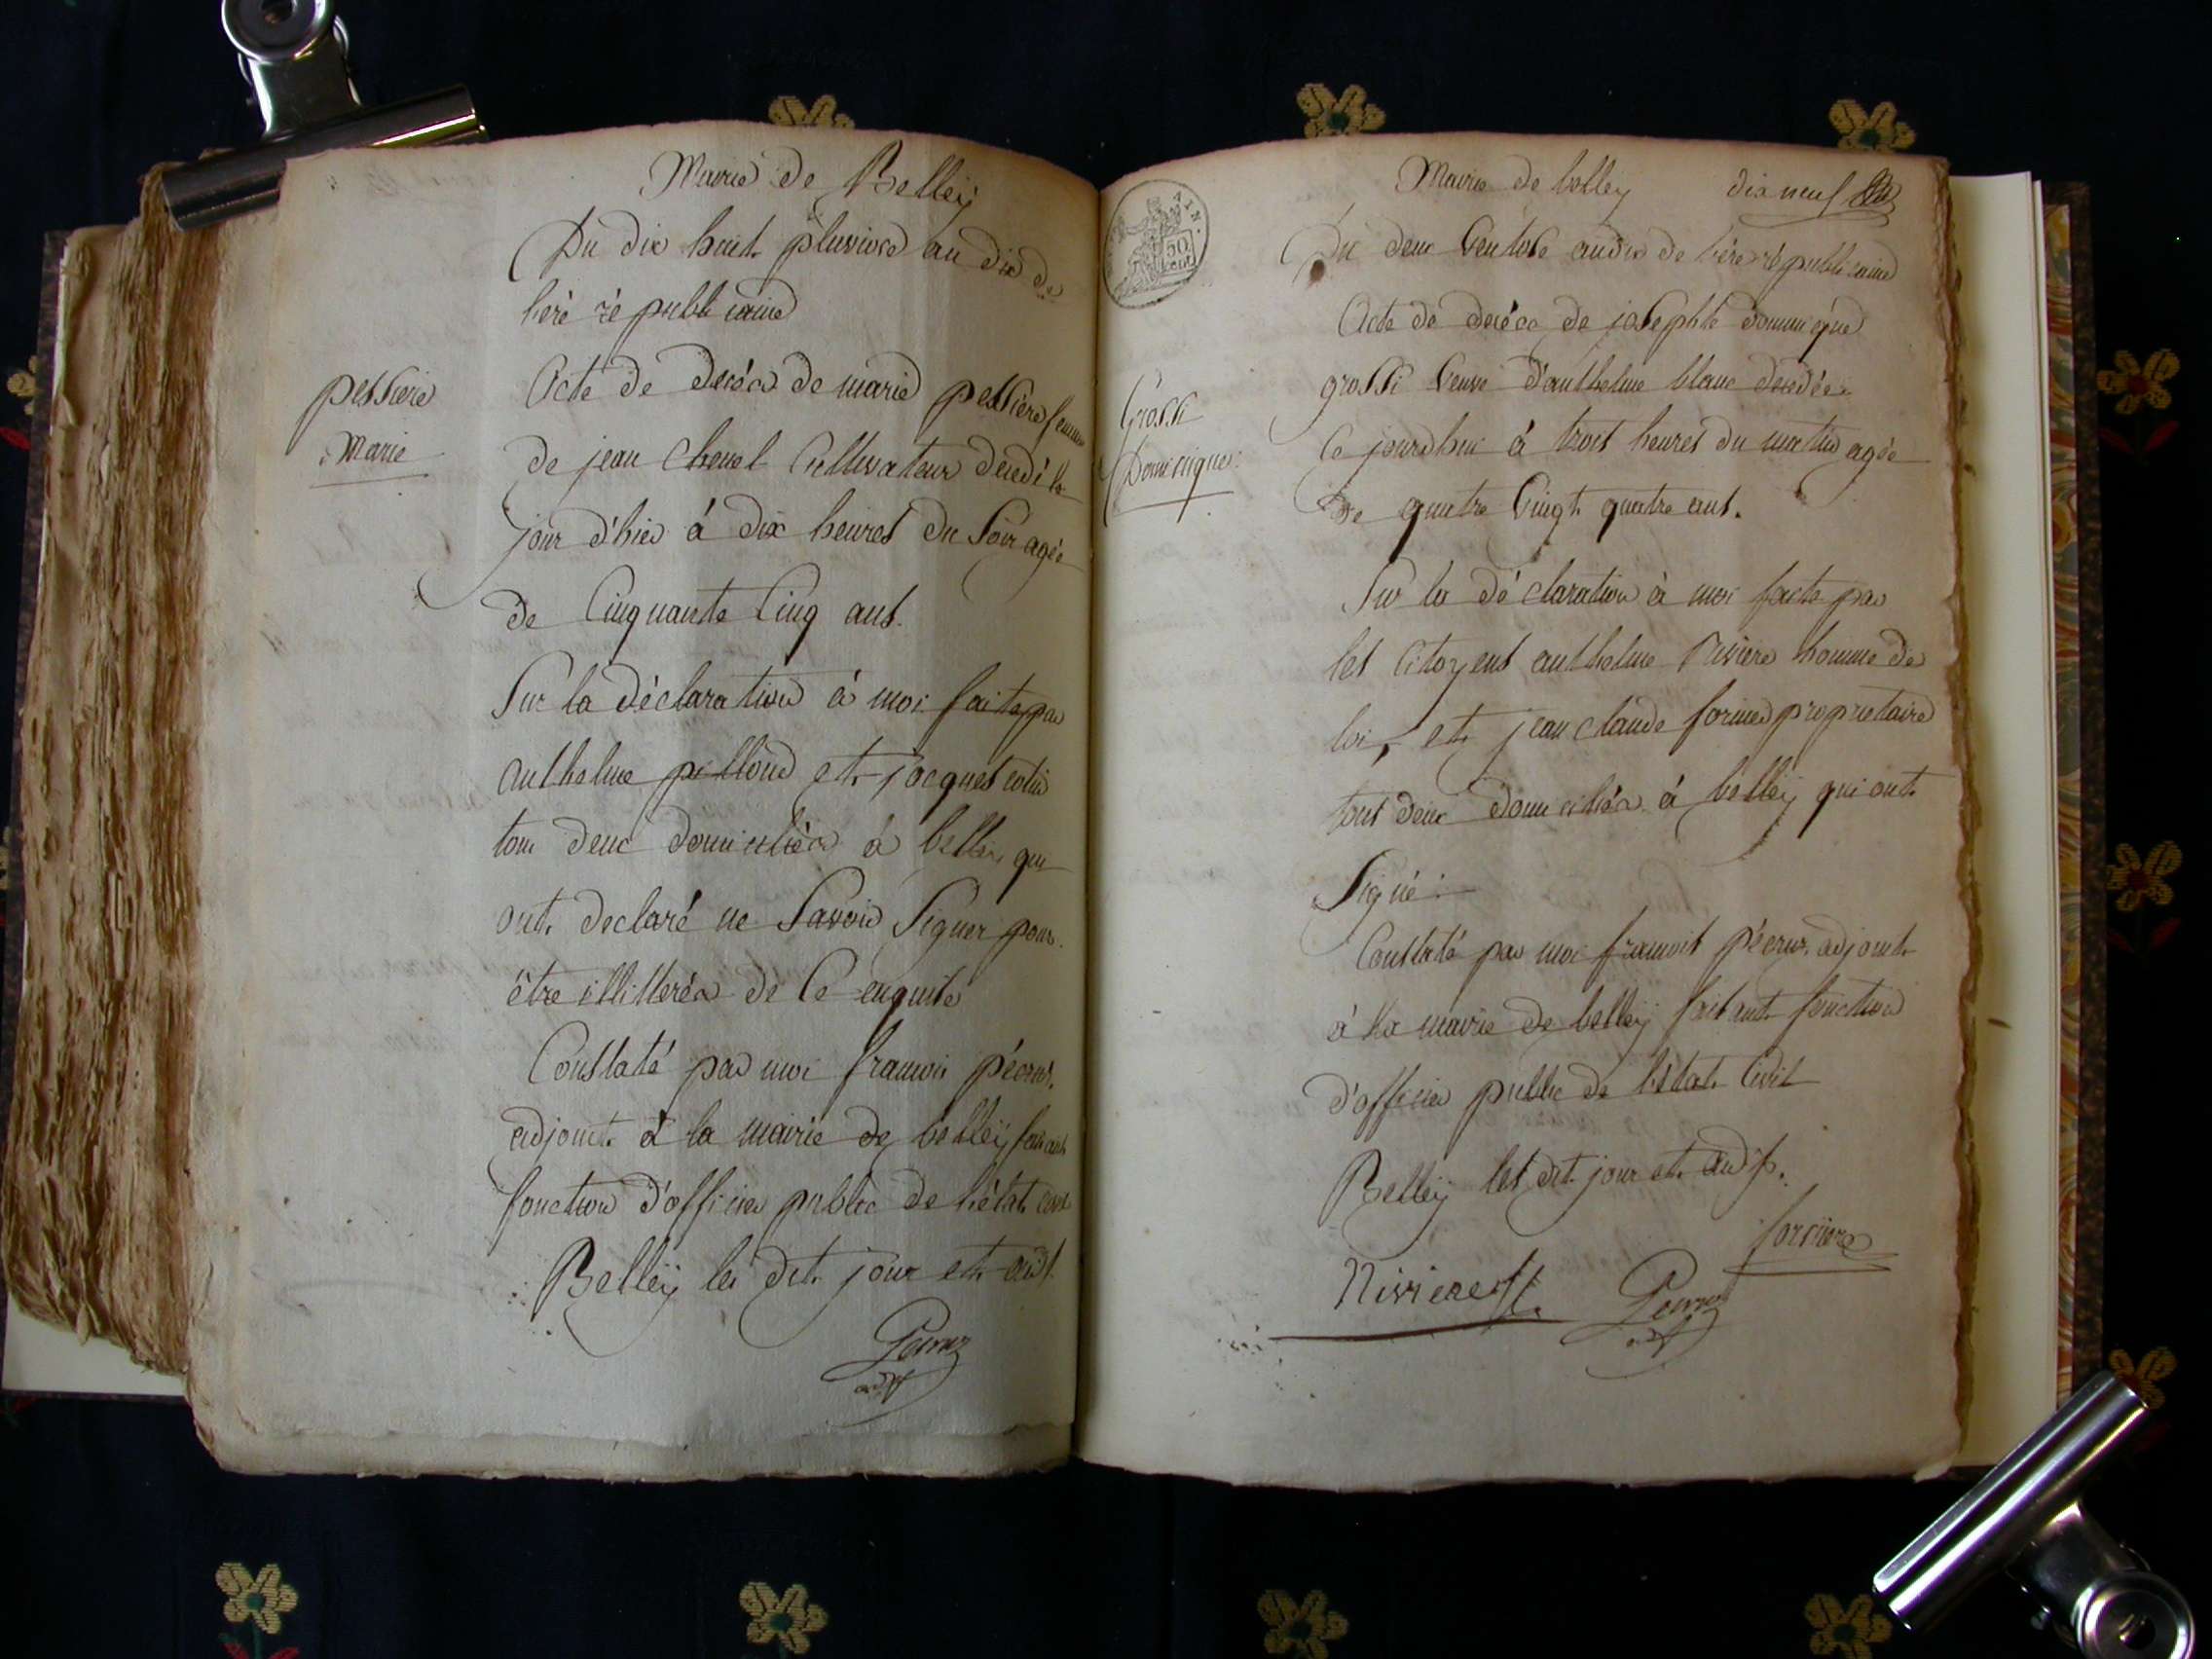 Mairie de Belleÿ
Du dix huit pluviose an dix de
l'erè républicaine
pessiere
Marie
Acte de decéa de marie pessiere femme
de jean Chenel Cultivateur decedé le
jour d'hier à dix heures du soir agée
de Cinquante Cinq ans.
Sur la déclaration à moi faite par
anthelme pillond et jacques
tous deux domiciliéa à belleÿ qui
ont declaré ne savoir signer pour
être illitteréa de ce enquis
Constaté par moi francois pécruz
adjoint à la mairie de belleÿ faisant
fonction d'officier public de l'état civil
Belleÿ les dit jour et an
Pécruz
adjt
Mairie de belley dix neuf
AIN
50
cent
Du deux ventose an dix de l'ère républicaine
Grossi
Dominique
Acte de decéa de josephte dominique
grossi veuve d'anthelme blanc decedée
Ce jourdhui à trois heures du matin agée
de quatre vingt quatre ans.
Sur la déclaration à moi faite par
les Citoyens anthelme Nivière homme de
loi, et jean claude propriétaire
tous deux domiciliéa à belleÿ qui ont
signé
Constaté par moi francois pécruz adjoint
à la mairie de belleÿ faisant fonction
d'officier public de l'état Civil
Belleÿ les dit jour et an
Niviere
Pécruz
adjt